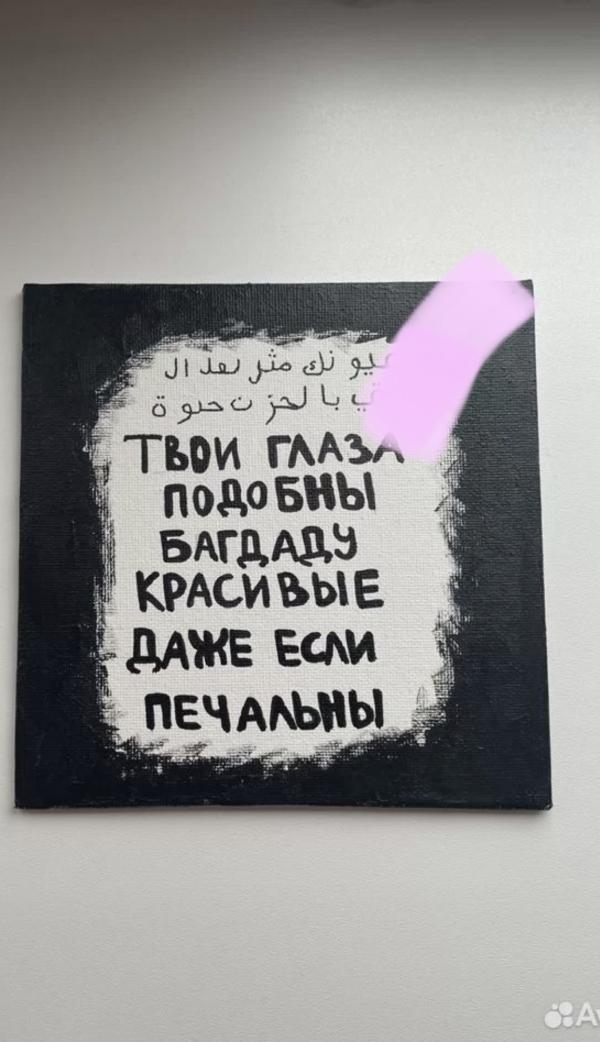 نك مثل
با لحز ن حلو ة
ТВОИ ГЛАЗА
ПОДОБНЫ
БАГДАДУ
КРАСИВЫЕ
ДАЖЕ ЕСЛИ
ПЕЧАЛЬНЫ